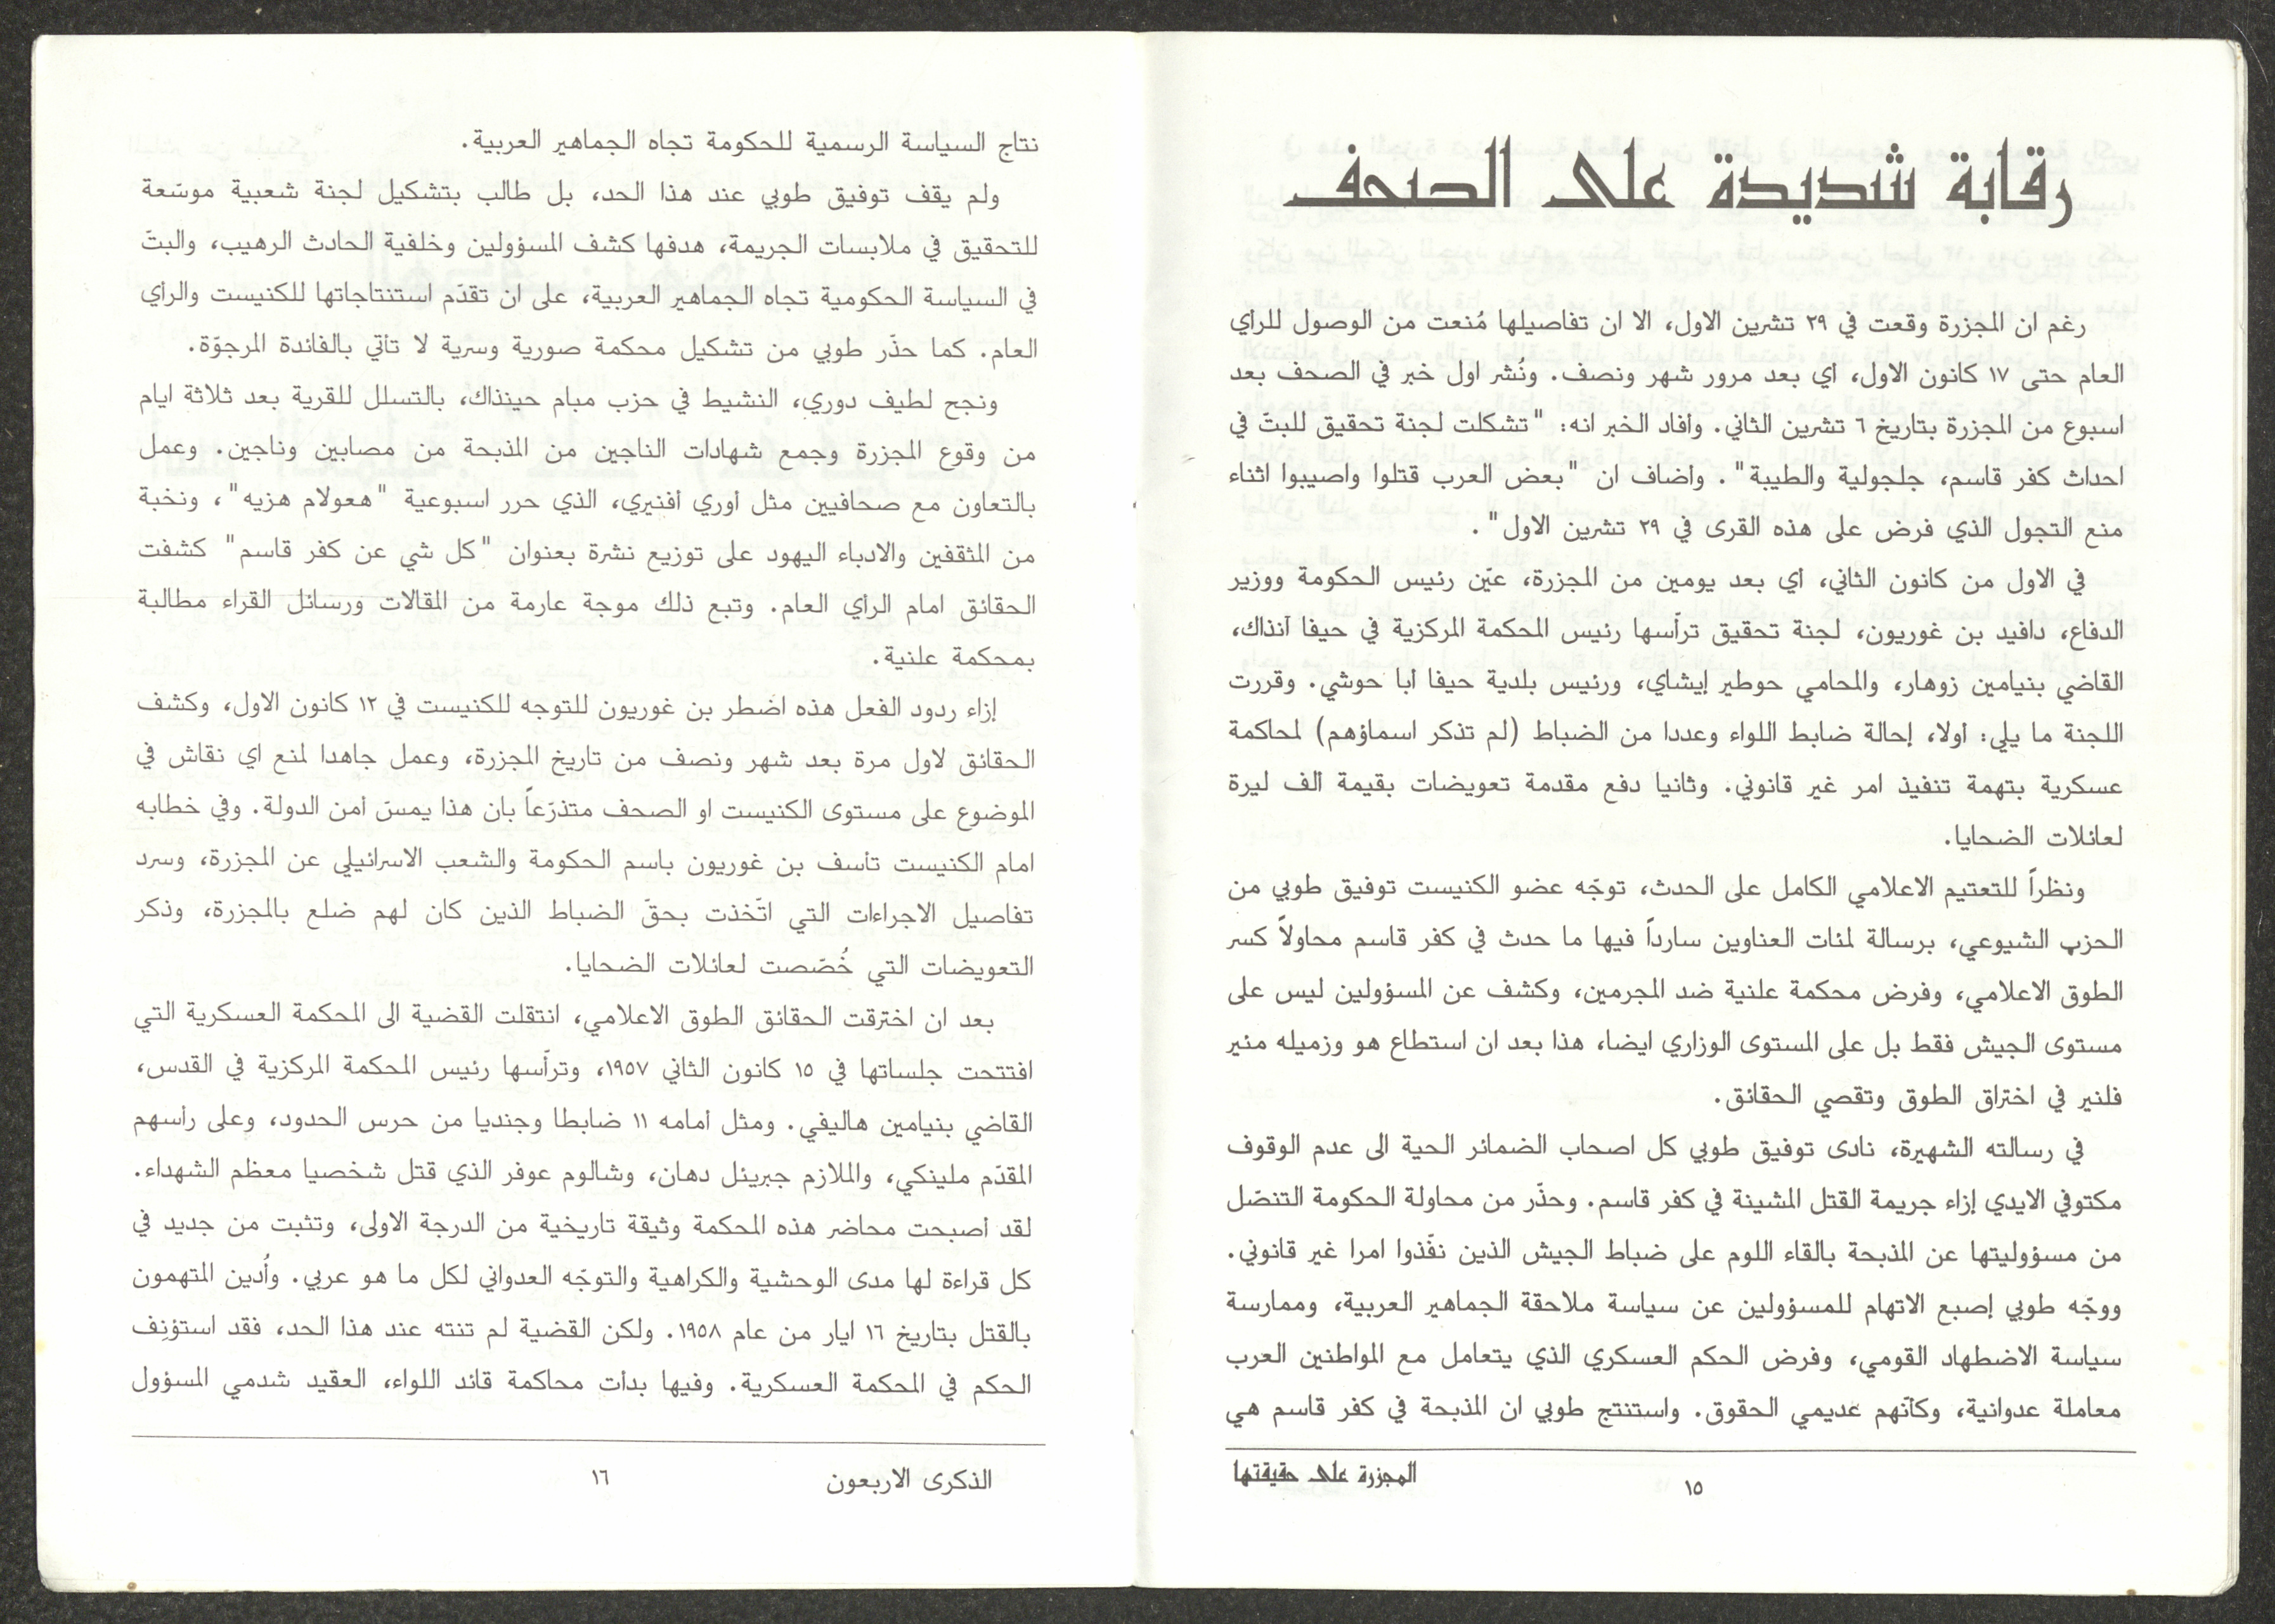 رقابة شديدة على الصحف
رغم ان المجزرة وقعت في ٢٩ تشرين الاول، الا ان تفاصيلها مُنعت من الوصول للرأي
العام حتى ١٧ كانون الاول، أي بعد مرور شهر ونصف. ونُشر اول خبر في الصحف بعد
اسبوع من المجزرة بتاريخ ٦ تشرين الثاني. وأفاد الخبر انه: "تشكلت لجنة تحقيق للبتّ في
احداث كفر قاسم، جلجولية والطيبة". واضاف ان "بعض العرب قتلوا واصيبوا اثناء
منع التجول الذي فرض على هذه القرى في ٢٩ تشرين الاول".
في الاول من كانون الثاني، أي بعد يومين من المجزرة، عيّن رئيس الحكومة ووزير
الدفاع، دافيد بن غوريون، لجنة تحقيق ترأسها رئيس المحكمة المركزية في حيفا آنذاك،
القاضي بنيامين زوهار، والمحامي حوطير إيشاي، ورئيس بلدية حيفا أبا حوشي. وقررت
اللجنة ما يلي: أولا، إحالة ضابط اللواء وعددا من الضباط (لم تذكر اسماؤهم) لمحاكمة
عسكرية بتهمة تنفيذ امر غير قانوني. وثانيا دفع مقدمة تعويضات بقيمة ألف ليرة
لعائلات الضحايا.
ونظراً للتعتيم الاعلامي الكامل على الحدث، توجّه عضو الكنيست توفيق طوبي من
الحزب الشيوعي، برسالة لمئات العناوين سارداً فيها ما حدث في كفر قاسم محاولاً كسر
الطوق الاعلامي، وفرض محكمة علنية ضد المجرمين، وكشف عن المسؤولين ليس على
مستوى الجيش فقط بل على المستوى الوزاري ايضا، هذا بعد ان استطاع هو وزميله مئير
فلنير في اختراق الطوق وتقصي الحقائق.
في رسالته الشهيرة، نادى توفيق طوبي كل اصحاب الضمائر الحية الى عدم الوقوف
مكتوفي الايدي إزاء جريمة القتل المشينة في كفر قاسم. وحذّر من محاولة الحكومة التنصّل
من مسؤوليتها عن المذبحة بالقاء اللوم على ضباط الجيش الذين نفّذوا امرا غير قانوني.
ووجّه طوبي إصبع الاتهام للمسؤولين عن سياسة ملاحقة الجماهير العربية، وممارسة
سياسة الاضطهاد القومي، وفرض الحكم العسكري الذي يتعامل مع المواطنين العرب
معاملة عدوانية، وكأنّهم عديمي الحقوق. واستنتج طوبي ان المذبحة في كفر قاسم هي
المجزرة على حقيقتها
١٥
نتاج السياسة الرسمية للحكومة تجاه الجماهير العربية.
ولم يقف توفيق طوبي عند هذا الحد، بل طالب بتشكيل لجنة شعبية موسّعة
للتحقيق في ملابسات الجريمة، هدفها كشف المسؤولين وخلفية الحادث الرهيب، والبتّ
في السياسة الحكومية تجاه الجماهير العربية، على ان تقدّم استنتاجاتها للكنيست والرأي
العام. كما حذّر طوبي من تشكيل محكمة صورية وسرية لا تأتي بالفائدة المرجوّة.
ونجح لطيف دوري، النشيط في حزب مبام حينذاك، بالتسلل للقرية بعد ثلاثة ايام
من وقوع المجزرة وجمع شهادات الناجين من المذبحة من مصابين وناجين. وعمل
بالتعاون مع صحافيين مثل أوري أفنيري، الذي حرر اسبوعية "هعولام هزيه"، ونخبة
من المثقفين والادباء اليهود على توزيع نشرة بعنوان "كل شي عن كفر قاسم" كشفت
الحقائق امام الرأي العام. وتبع ذلك موجة عارمة من المقالات ورسائل القراء مطالبة
بمحكمة علنية.
إزاء ردود الفعل هذه اضطر بن غوريون للتوجه للكنيست في ١٢ كانون الاول، وكشف
الحقائق لاول مرة بعد شهر ونصف من تاريخ المجزرة، وعمل جاهدا لمنع اي نقاش في
الموضوع على مستوى الكنيست او الصحف متذرّعاً بان هذا يمسّ أمن الدولة. وفي خطابه
امام الكنيست تأسف بن غوريون باسم الحكومة والشعب الاسرائيلي عن المجزرة، وسرد
تفاصيل الاجراءات التي اتّخذت بحقّ الضباط الذين كان لهم ضلع بالمجزرة، وذكر
التعويضات التي خُصّصت لعائلات الضحايا.
بعد ان اخترقت الحقائق الطوق الاعلامي، انتقلت القضية الى المحكمة العسكرية التي
افتتحت جلساتها في ١٥ كانون الثاني ١٩٥٧، وترأسها رئيس المحكمة المركزية في القدس،
القاضي بنيامين هاليفي. ومثل أمامه ١١ ضابطا وجنديا من حرس الحدود، وعلى رأسهم
المقدّم ملينكي، والملازم جبريئل دهان، وشالوم عوفر الذي قتل شخصيا معظم الشهداء.
لقد أصبحت محاضر هذه المحكمة وثيقة تاريخية من الدرجة الاولى، وتثبت من جديد في
كل قراءة لها مدى الوحشية والكراهية والتوجّه العدواني لكل ما هو عربي. وأُدين المتهمون
بالقتل بتاريخ ١٦ ايار من عام ١٩٥٨. ولكن القضية لم تنته عند هذا الحد، فقد استؤنِف
الحكم في المحكمة العسكرية. وفيها بدأت محاكمة قائد اللواء، العقيد شدمي المسؤول
الذكرى الاربعون
١٦